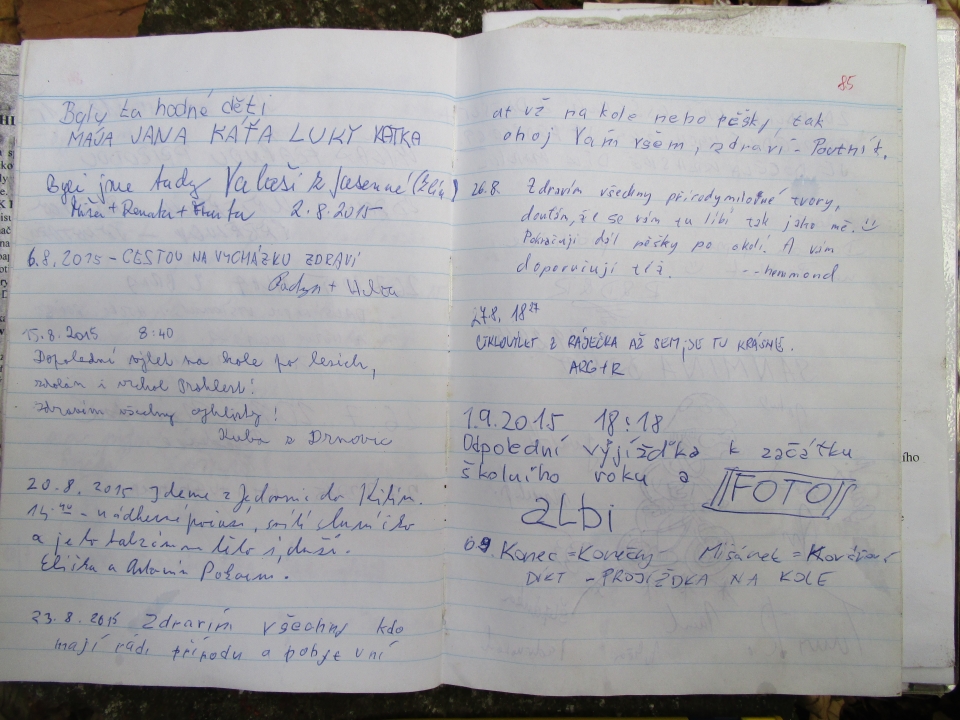 Byly tu hodné děti
MÁJA JANA KÁŤA LUKY KATKA
Byli jsme tudy Valaši z Jasenné (Zlín)
Renata + 2.8.2015
6.8.2015 - CESTOU NA VYCHÁZKU ZDRAVÍ
15.8.2015 8:40
Dopolední výlet na kole po lesích,
zdolán i vrchol
Zdravím všechny cyklisty!
Kuba z Drnovic
20.8.2015 Jdeme z Jedovnic do Křtin.
14. - nádherné počasí, svítí sluníčko
a je to balzám na tělo i duši.
Eliška a Antonín
23.8.2015 Zdravím všechny kdo
mají rádi přírodu a pohyb v ní
85
ať už na kole nebo pěšky, tak
ahoj Vám všem, zdraví - Poutník.
26.8. Zdravím všechny přírodymilovné tvory,
doufám, že se vám tu líbí tak jako mě.
Pokračuji dál pěšky po okolí. A vám
doporučuji též. --hemmond
27.8. 18
CYKLOVÝLET Z RÁJEČKA AŽ SEM, JE TU KRÁSNĚ.
ARG+R
1.9.2015 18:18
Odpolední vyjížďka k začátku
školního roku a FOTO
albi
6.9. Konec = Konečný Mišánek =
DIKT - PROJÍŽDKA NA KOLE